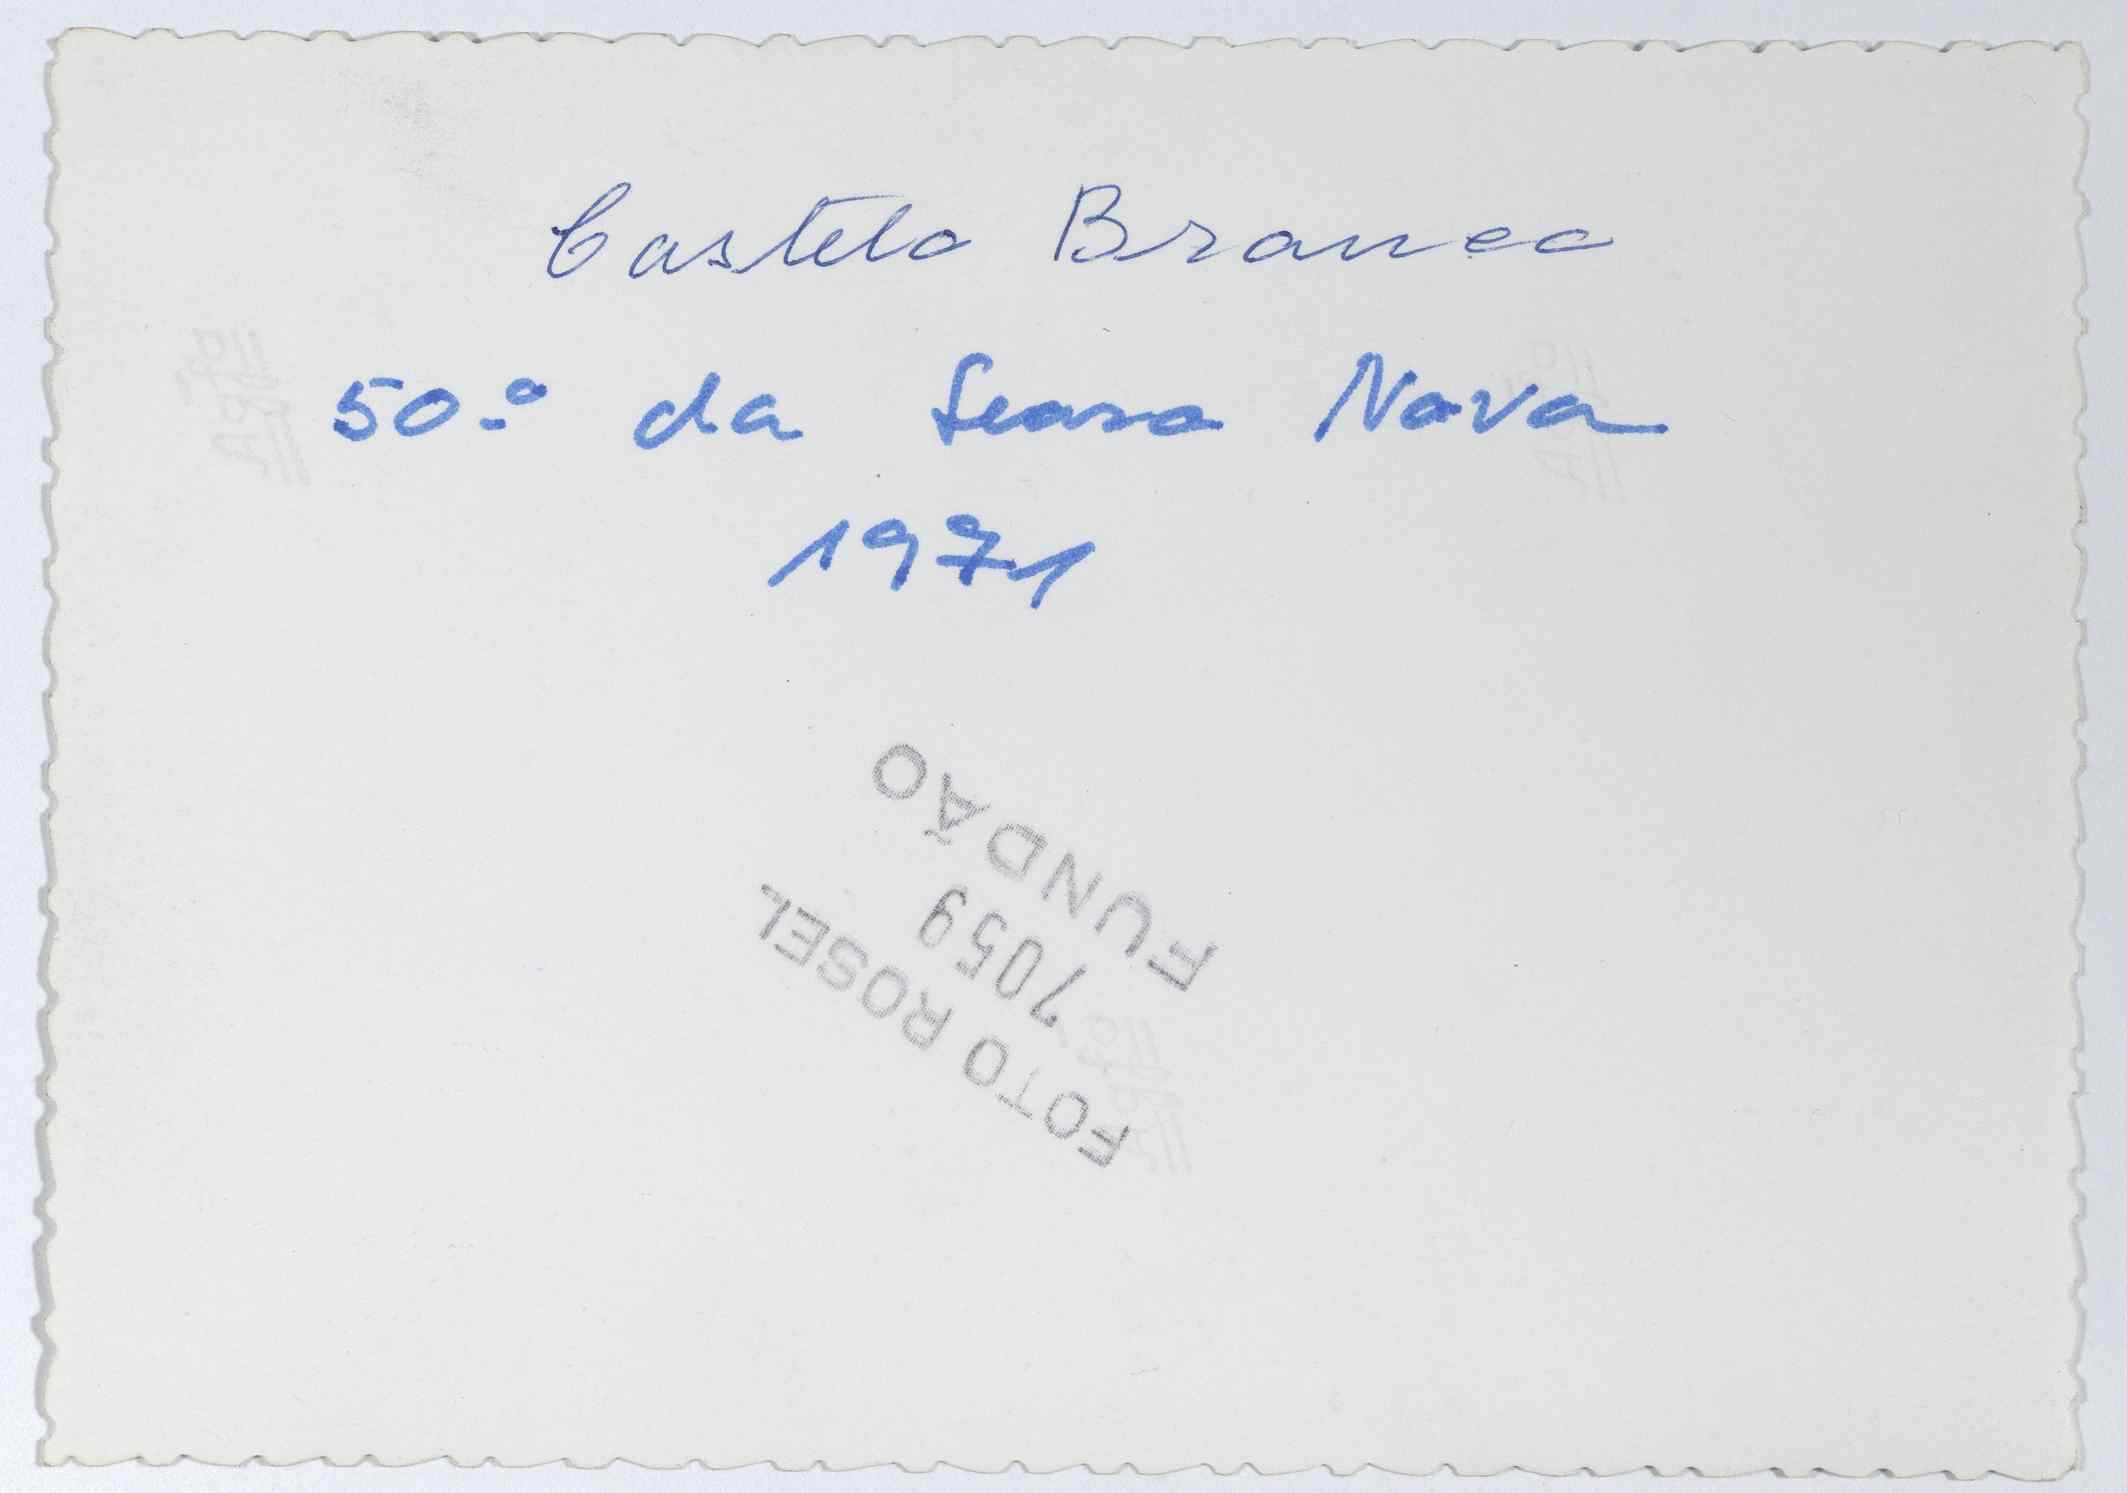 Castelo Branco
50.º da Seara Nova
1971
FOTO ROSEL
7059
FUNDÃO